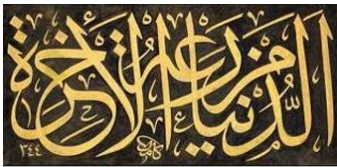 الدُّنْيَا مَزْرَعَةُ الْآخِرَةِ
٣٤٤